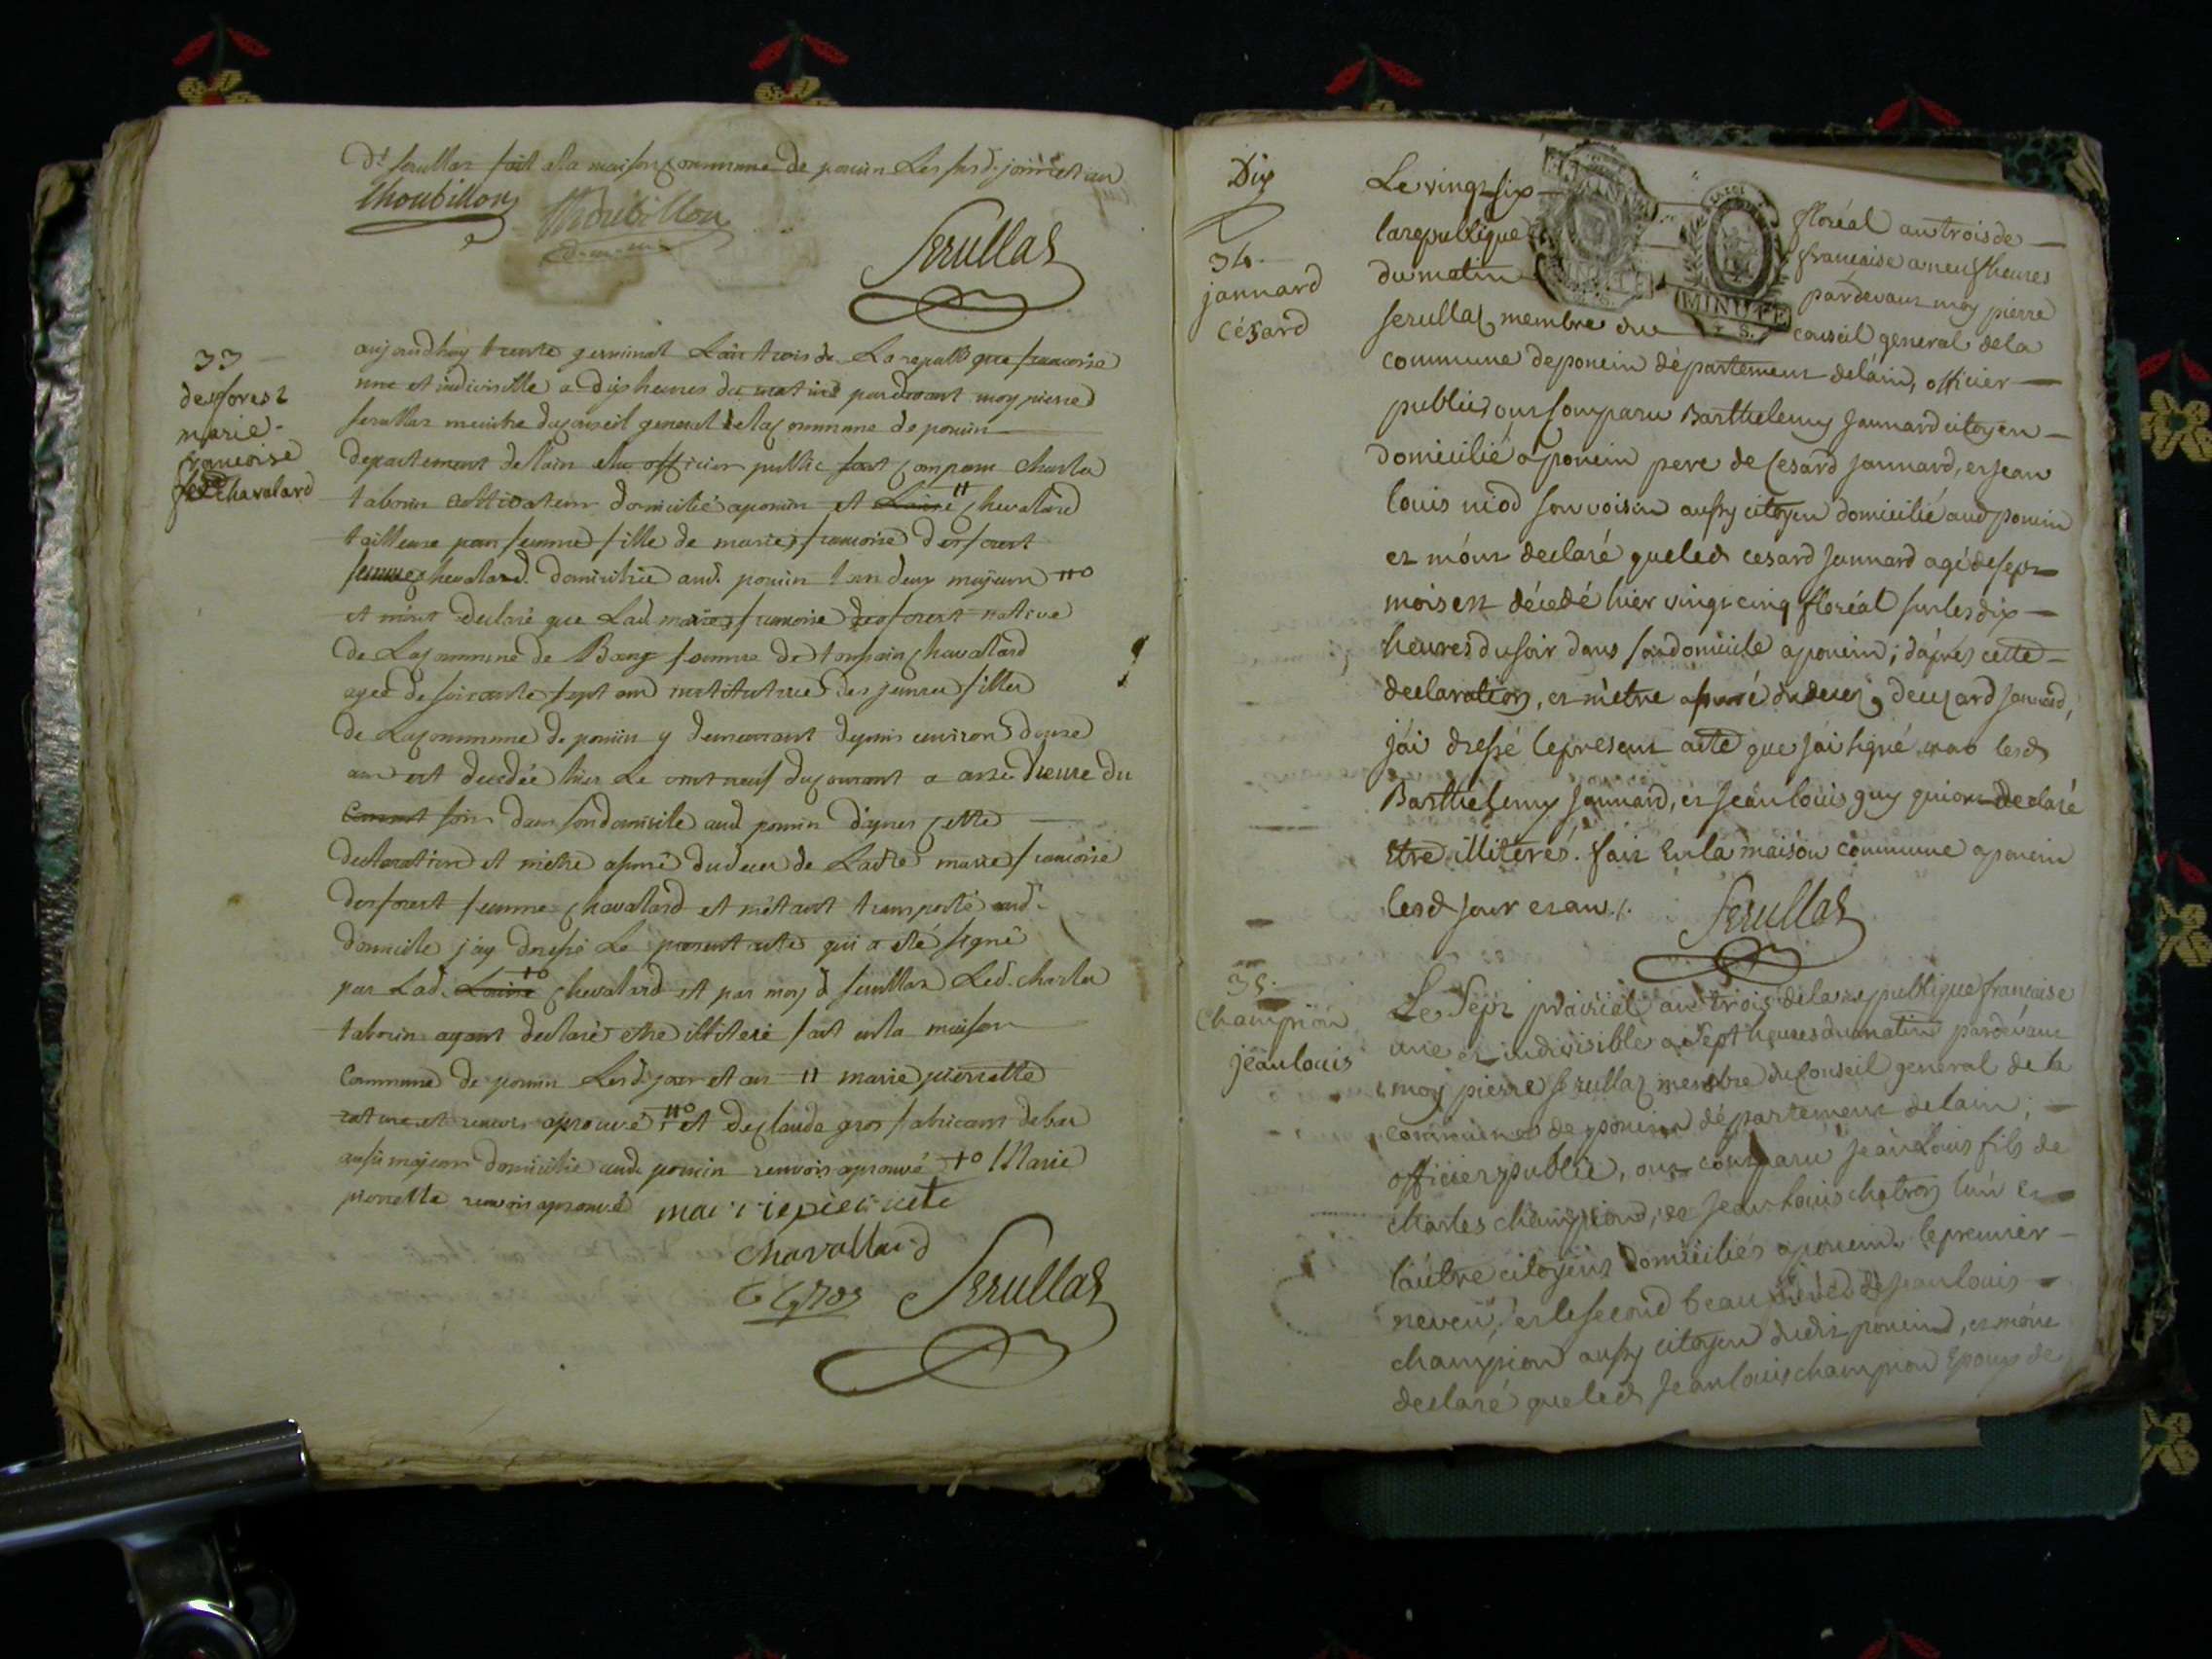 Dt serullaz fait a la maison commune de poncin Les susd. jour et an
thoubillon
thoubillon
Serullaz
33
desforest
marie
francoise
fe Chavalard
aujourdhuy trente germinal Lan trois de La republique francoise
une et indivisible a dix heures du matin pardevant moy pierre
serullaz membre du conseil general de la commune de poncin
departement de lain elu officier public sont comparu charles
taborin cultivateur domicilié a poncin et Louise " chevalard
tailleuse pour femme fille de marie francoise desforest
femme chevalard domiciliée aud. poncin tous deux majeurs "o
et m'ont declaré que Lad. marie francoise desforest native
de La commune de Bourg femme de toussain chavalard
agée de soixante sept ans institutrice des jeunes filles
de La commune de poncin y demeurant depuis environ douze
ans est decedée hier Le vint neuf du courant a onze heure du
soir dans son domicile aud poncin d'apres cette
declaration et m'etre assuré du deces de Ladte marie francoise
desforest femme chavalard et m'etant transporté aud.
domicile j'ay dressé Le present acte qui a eté signé
par Lad. Louise +o chevalard et par moy d serullaz Led. charles
taborin ayant declaré etre illiteré fait en la maison
commune de poncin Lesd. jour et an " marie pierrette
rature et renvois aprouvé "o et de claude gros fabricant de bas
aussi majeur domicilié aud. poncin renvois aprouvé +o Marie
pierrette renvois aprouvé marie pierrette
chavallard
C Gros Serullaz
Dix
34
jannard
césard
Le vingt six floréal an trois de
la republique francaise a neuf heures
du matin pardevant moy pierre
serullaz membre du conseil general de la
MINUTE
commune de poncin département de lain, officier
public, ont comparu Barthelemy Jannard citoyen
domicilié a poncin pere de Cesard Jannard, et jean
louis niod son voisin aussy citoyen domicilié aud poncin
et m'ont declaré que led cesard Jannard agé de sept
mois est décédé hier vingt cinq floréal sur les dix
heures du soir dans son domicile a poncin; d'apres cette
declaration, et m'etre assuré du deces de cezard Jannard,
j'ai dressé le present acte que j'ai signé lesd
Barthelemy Jannard, et Jean louis guy qui ont declaré
etre illiterés. fait en la maison commune a poncin
lesd jour et an ./.
Serullaz
35
Champion
jean louis
Le Sept prairial an trois de la republique francaise
une et indivisible a sept heures du matin pardevant
moy pierre serullaz membre du conseil general de la
commune de poncin département de lain;
officier public, ont comparu Jean Louis fils de
charles champion, et Jean Louis chatron l'un et
l'autre citoyens domiciliés a poncin, le premier
neveu, et le second beau frere de Jean louis
champion aussy citoyen dudit poncin, et m'ont
declaré que led Jean louis champion Epoux de